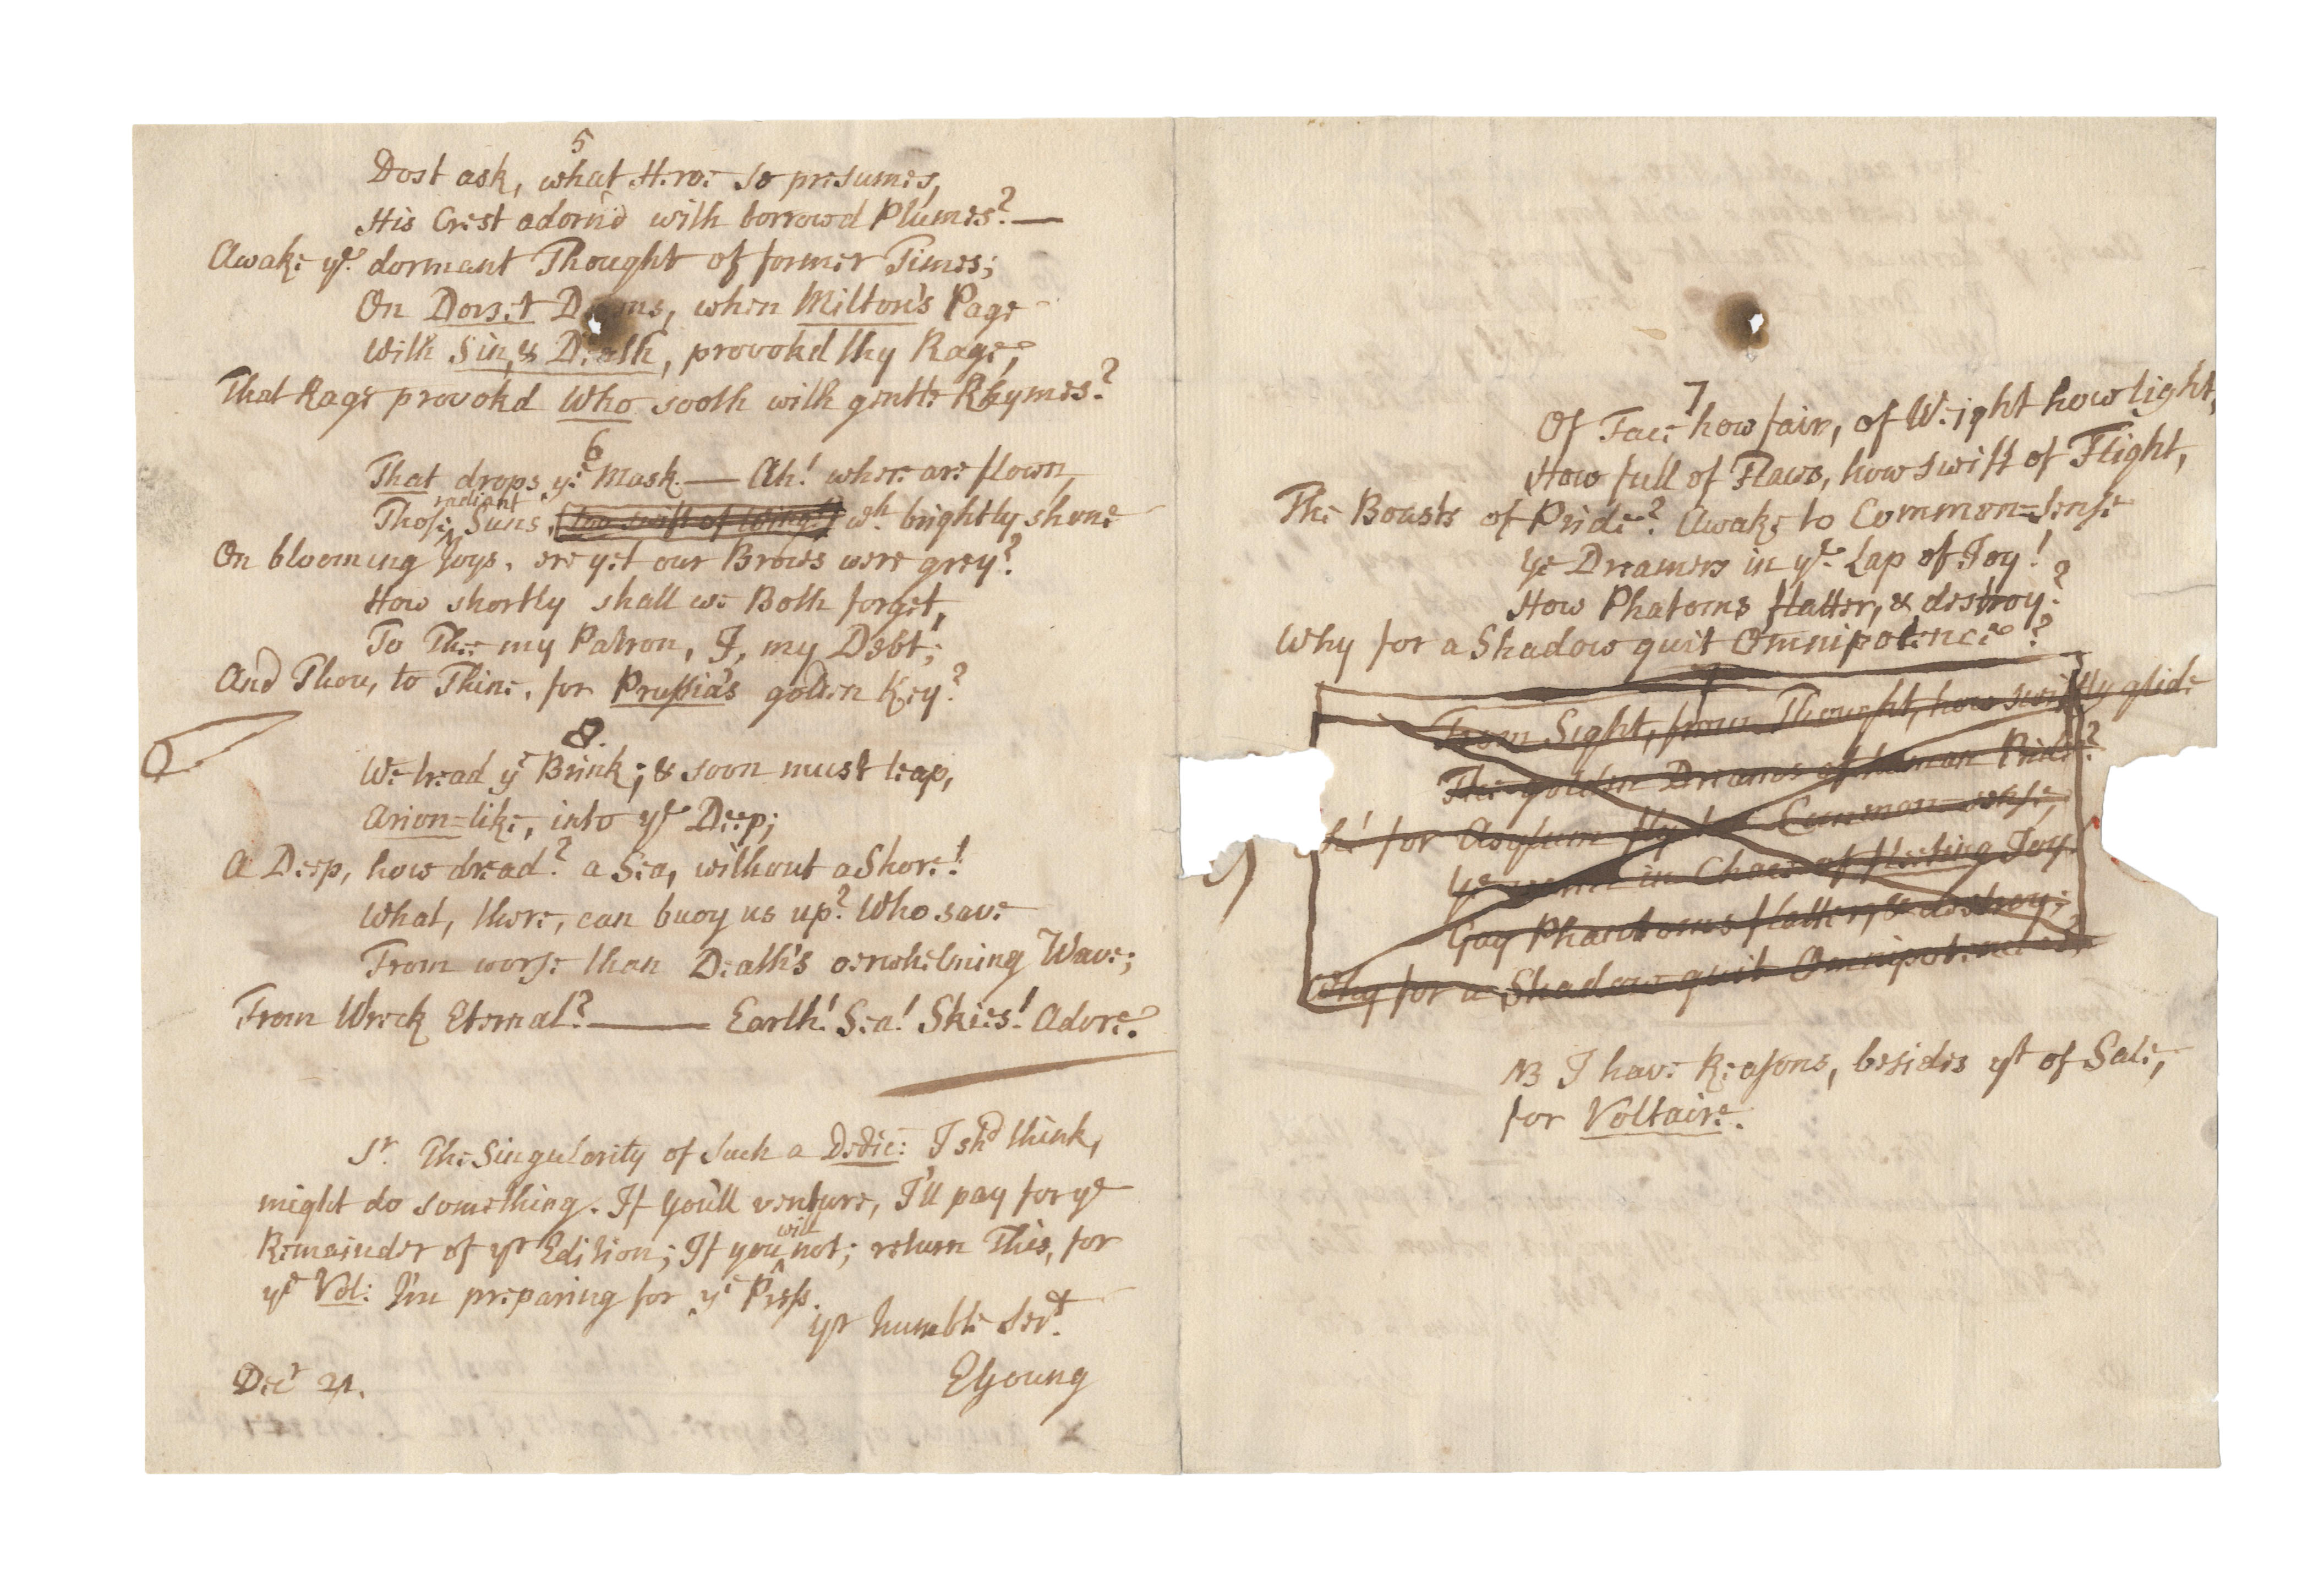 5
Dost ask, what Heroe so presumes,
His Crest adorn'd with borrowd Plumes? —
Awake ye dormant Thought of former Times;
On Dorset Downs, when Milton's Page
With Sin, & Death, provokd thy Rage,
That Rage provokd Who sooth with gentle Rhymes?
6
That drops ye Mask. — Ah! where are flown,
radiant
Those, Suns, [too swift of Wing!] wh. brightly shone
On blooming Joys, ere yet our Brows were grey?
How shortly shall we Both forget,
To Thee my Patron, I, my Debt;
And Thou, to Thine, for Prussia's golden Key?
8.
We tread ye Brink; & soon must leap,
Arion-like, into ye Deep;
A Deep, how dread? a Sea, without a Shore!
What, there, can buoy us up? Who save
From worse than Death's oerwhelming Wave;
From Wreck Eternal? —— Earth! Sea! Skies! Adore.
Sr. The Singularity of such a Dedic: I shd think,
might do something. If you'll venture, I'll pay for ye
will
Remainder of yr Edition; If you not; return This, for
ye Vol: I'm preparing for ye Press.
yr humble Servt.
EYoung
Decr 21.
7
Of Face how fair, of Weight how light,
How full of Flaws, how swift of Flight,
The Boasts of Pride? Awake to Common-Sense
Ye Dreamers in ye Lap of Joy!
How Phatoms flatter, & destroy?
Why for a Shadow quit Omnipotence?
From Sight, from Thought, how swiftly glide
The golden Dreams of human Pride?
for Asylum fly to Common-sense,
Ye in Chace of fleeting Joy
Gay Phantoms flatter, & destroy;
Why for a Shadow quit Omnipotence?
NB I have Reasons, besides yt of Sale,
for Voltaire.